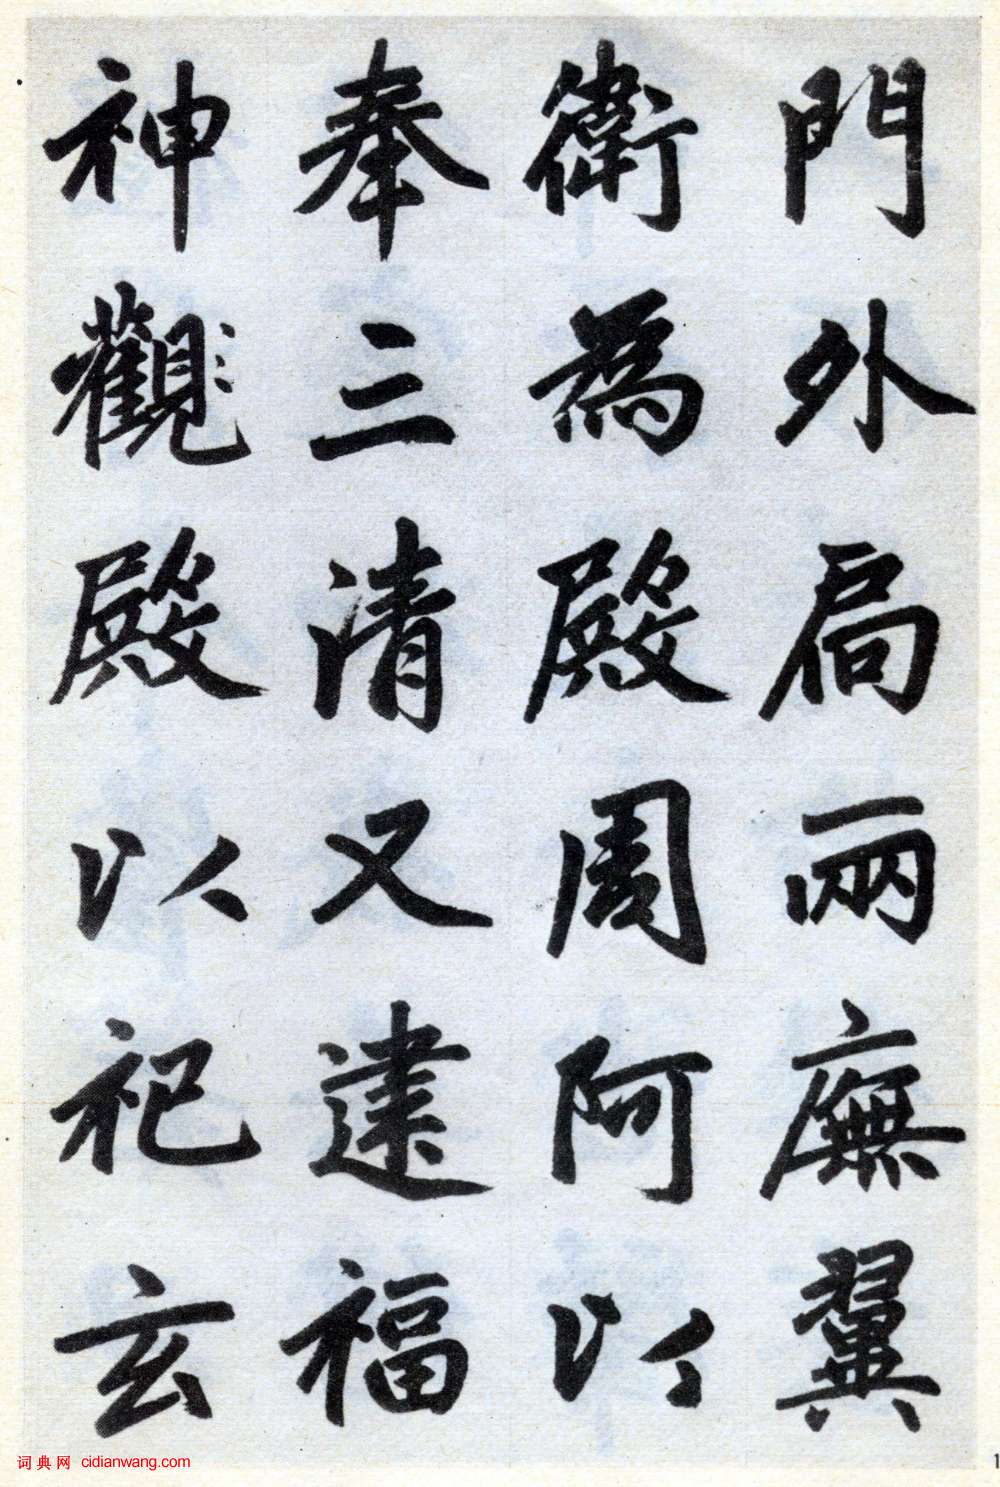 門外局兩廡翼
衛為殿周阿以
奉三清又建福
神觀殿以祀玄
词典网 cidianwang.com
1